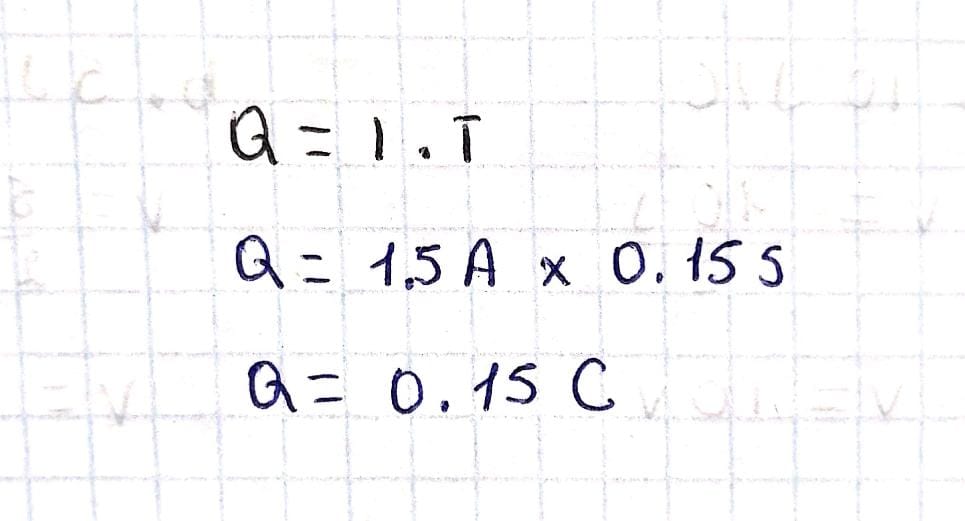 Q = I . T
Q = 1.5 A x 0.15 S
Q = 0.15 C